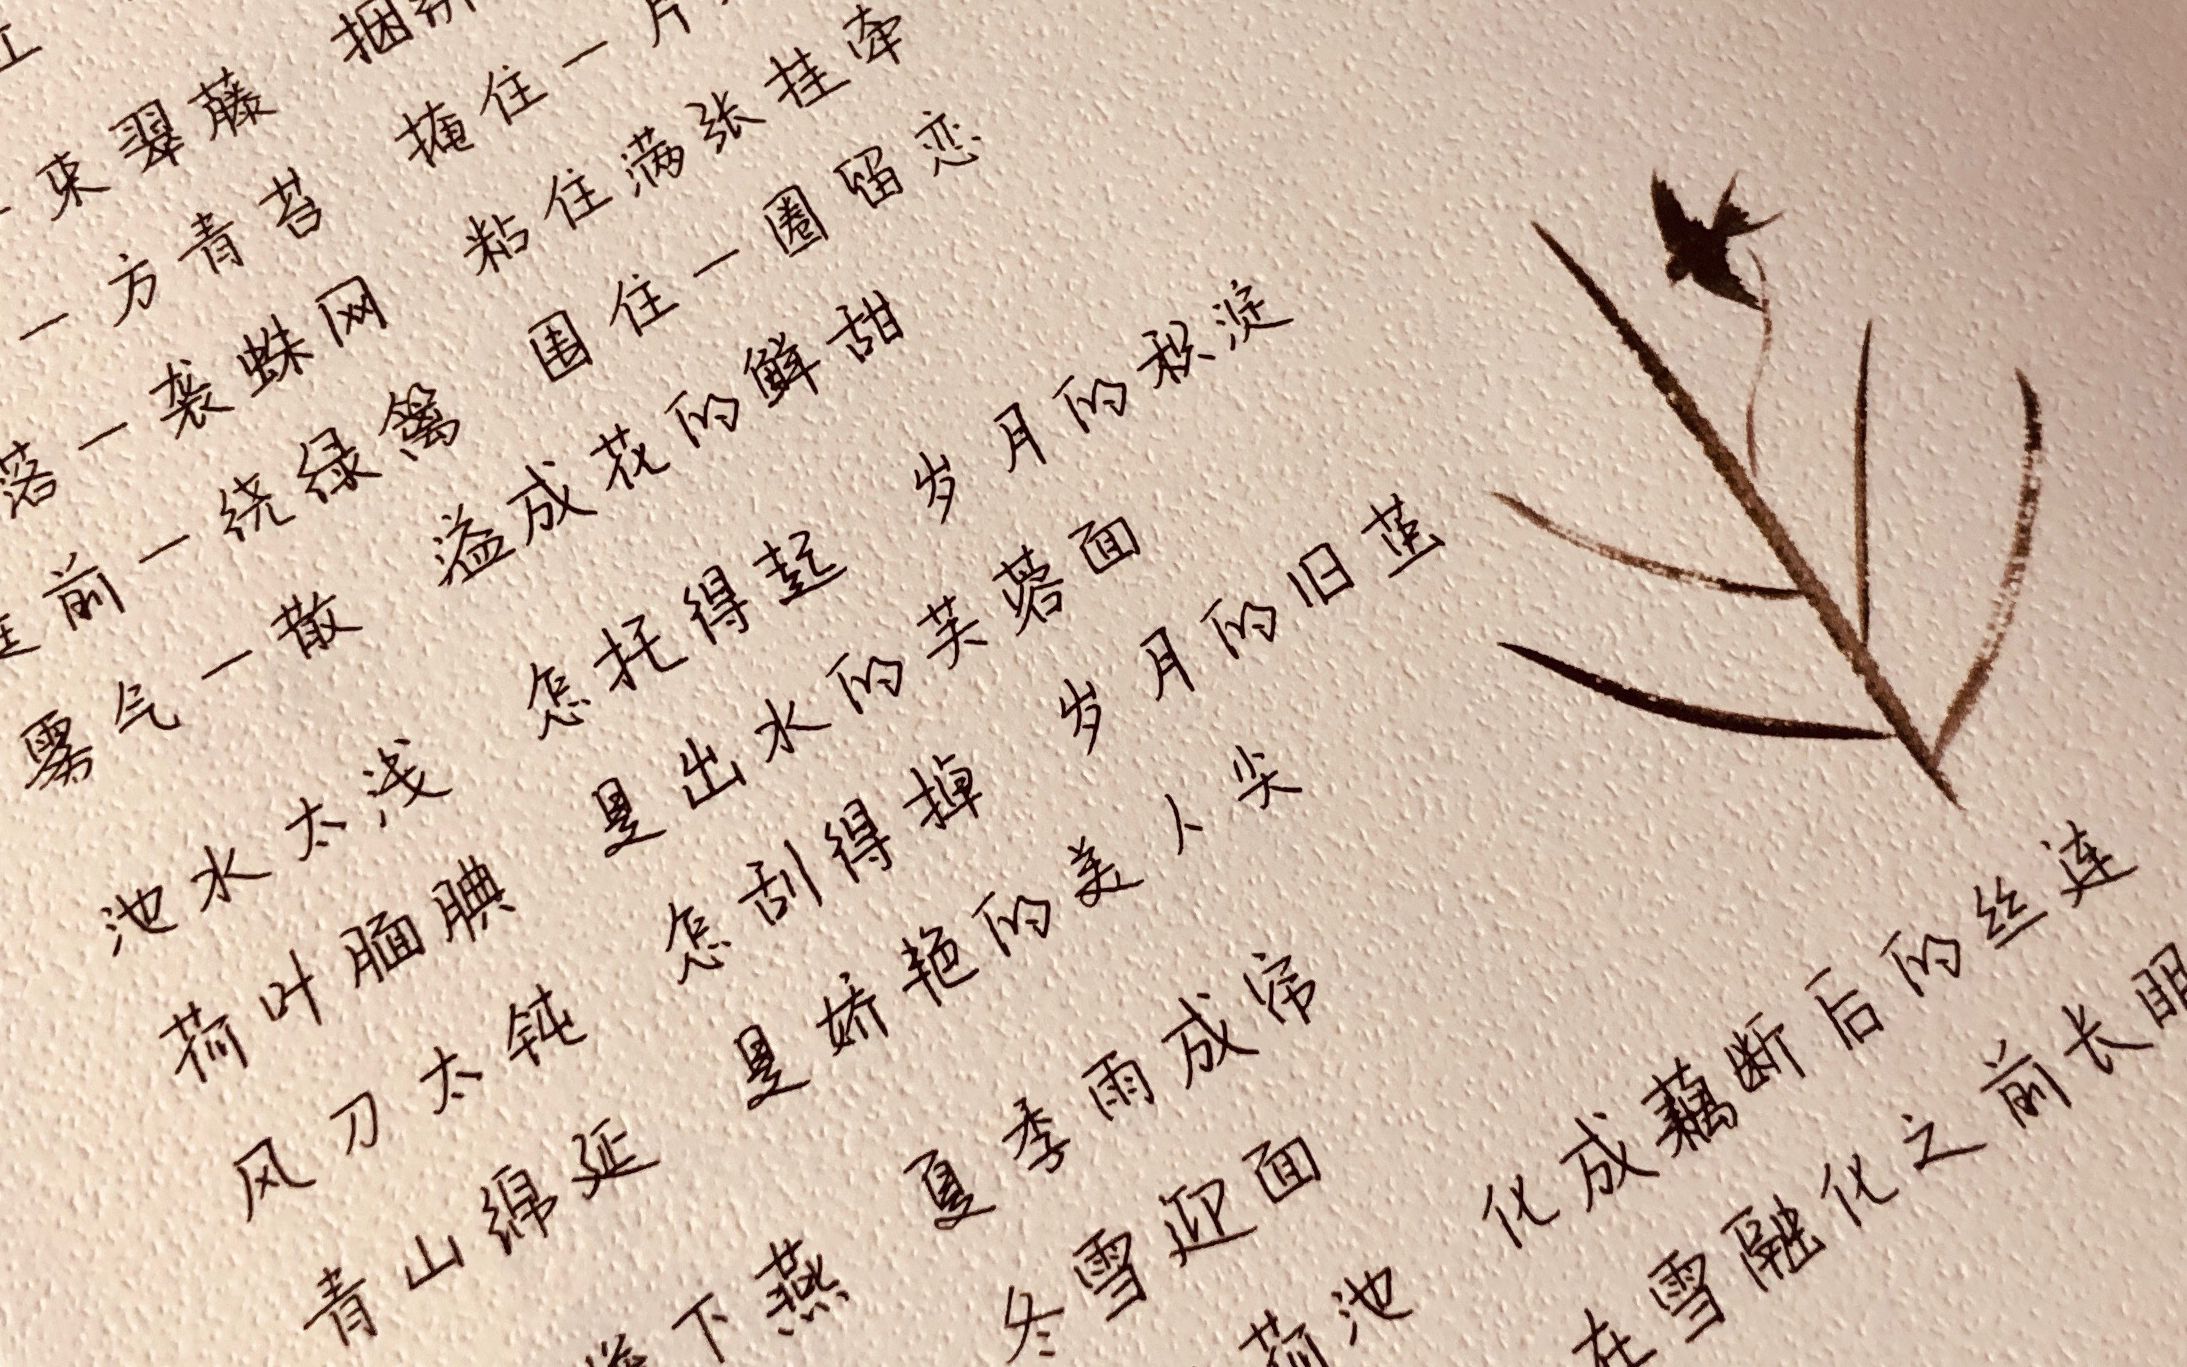 一束翠藤 捆
一方青苔 掩住一片
落一袭蛛网 粘住满张挂牵
前一绕绿禽 围住一圈留恋
雾气一散 溢成花的鲜甜
池水太浅 怎托得起 岁月的积淀
荷叶腼腆 是出水的芙蓉面
风刀太钝 怎刮得掉 岁月的旧茧
青山绵延 是娇艳的美人尖
下燕 夏季雨成帘
冬雪迎面
荷池 化成藕断后的丝连
在雪融化之前长眠